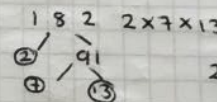 182 2×7×13
② 91
⑦ ⑬
2